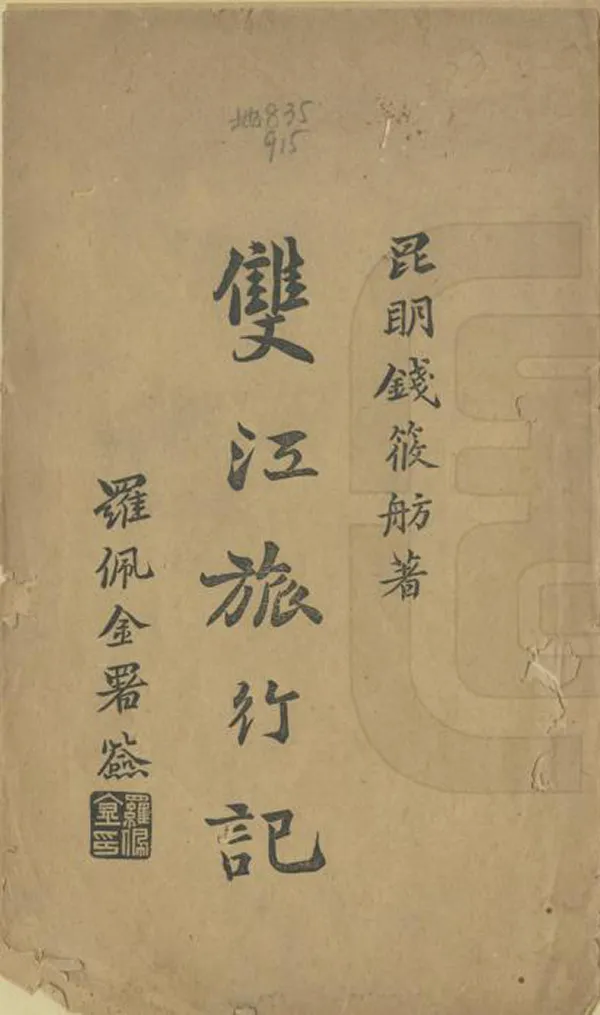 地835
915
昆明錢筱舫著
雙江旅行記
羅佩金署簽
羅佩金印